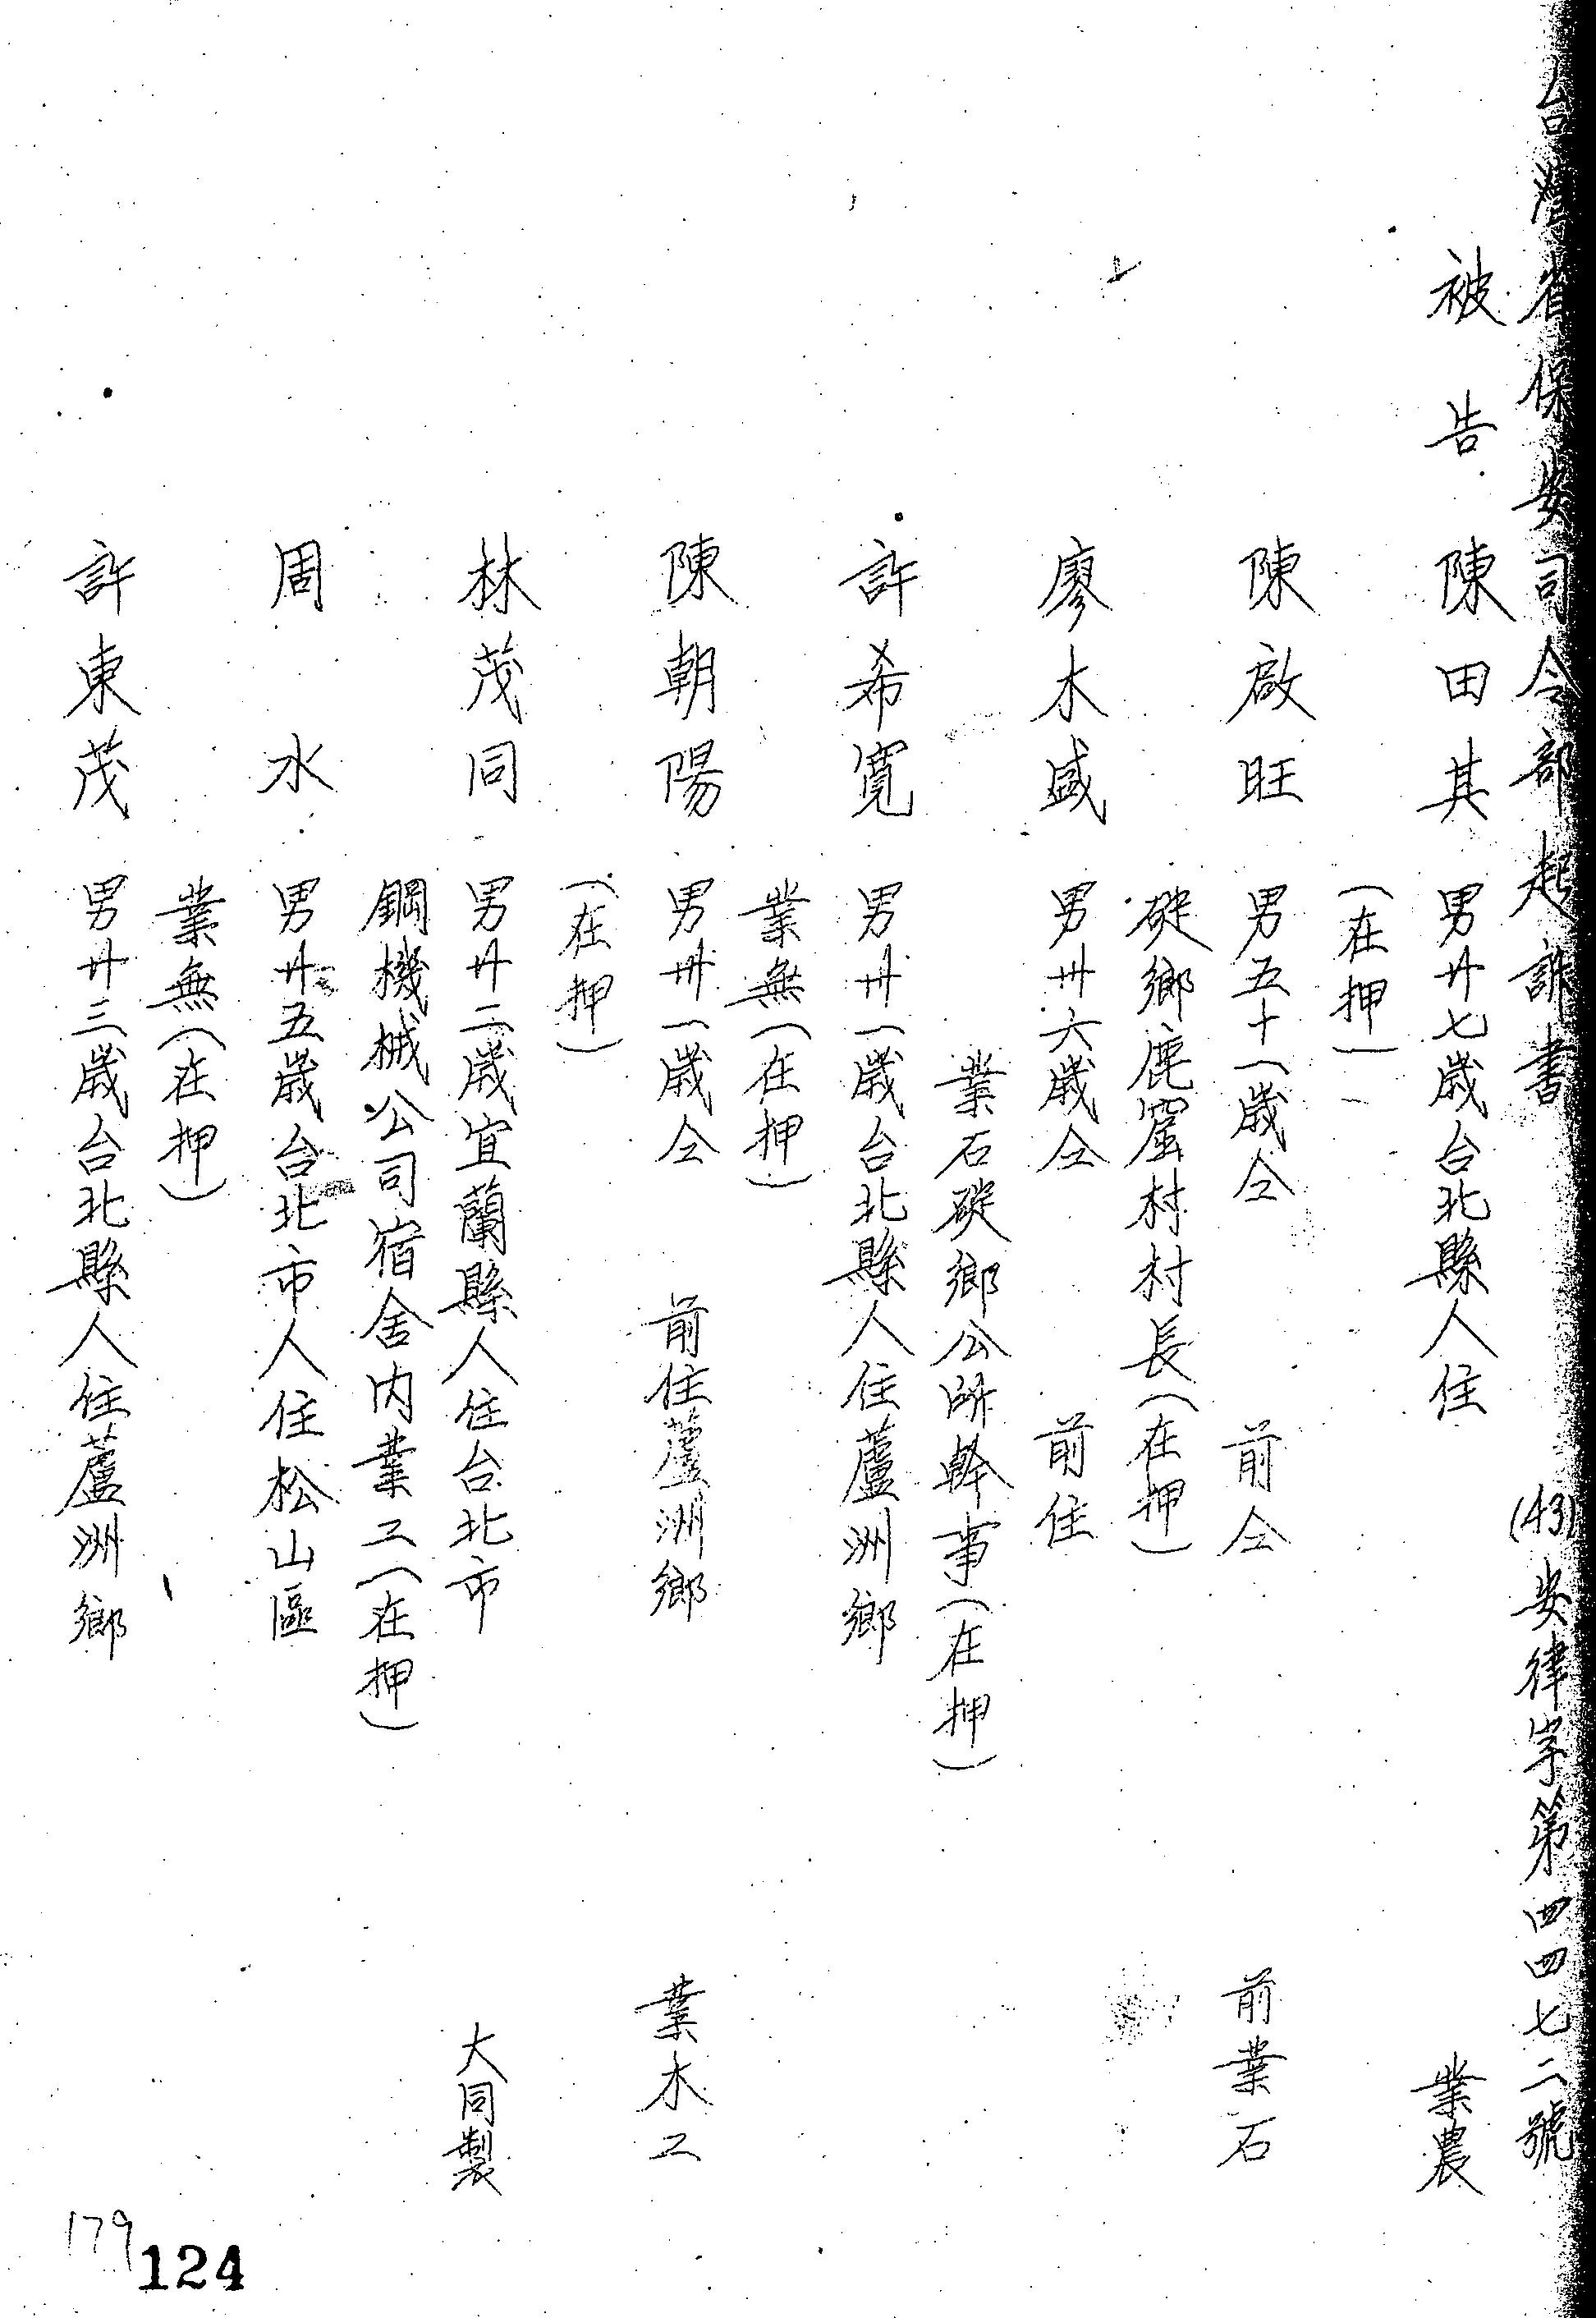 台灣省保安司令部起訴書 (43)安律字第四四七二號
被告 陳田其 男廿七歲台北縣人住 業農
(在押)
陳啟旺 男五十一歲仝 前仝 前業石
碇鄉鹿窟村村長(在押)
廖木盛 男卅六歲仝 前住
業石碇鄉公所幹事(在押)
許希寬 男卅一歲台北縣人住蘆洲鄉
業無(在押)
陳朝陽 男卅一歲仝 前住蘆洲鄉 業木工
(在押)
林茂同 男廿二歲宜蘭縣人住台北市 大同製
鋼機械公司宿舍內業工(在押)
周水 男廿五歲台北市人住松山區
業無(在押)
許東茂 男廿三歲台北縣人住蘆洲鄉
179
124